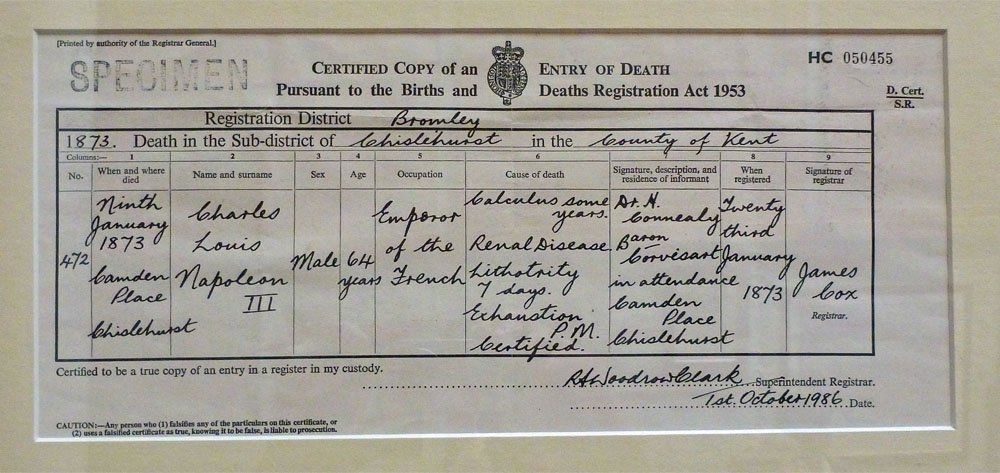 [Printed by authority of the Registrar General.]
SPECIMEN
HC 050455
CERTIFIED COPY OF AN ENTRY OF DEATH
Pursuant to the Births and Deaths Registration Act 1953
D. Cert.
S.R.
Registration District Bromley
1873. Death in the Sub-district of Chislehurst in the County of Kent
Columns:— 1 2 3 4 5 6 7 8 9
No.
When and where
died
Name and surname
Sex
Age
Occupation
Cause of death
Signature, description, and
residence of informant
When
registered
Signature of
registrar
472
Ninth
January
1873
Camden
Place
Chislehurst
Charles
Louis
Napoleon
III
Male
64
years
Emperor
of the
French
Calculus some
years.
Renal Disease
Lithotrity
7 days.
Exhaustion
P.M.
Certified.
Dr. N.
Connealy
Baron
Corvisart
in attendance
Camden
Place
Chislehurst
Twenty
third
January
1873
James
Cox
Registrar.
Certified to be a true copy of an entry in a register in my custody.
R A Woodrow Clark Superintendent Registrar.
1st. October 1986 Date.
CAUTION:—Any person who (1) falsifies any of the particulars on this certificate, or
(2) uses a falsified certificate as true, knowing it to be false, is liable to prosecution.